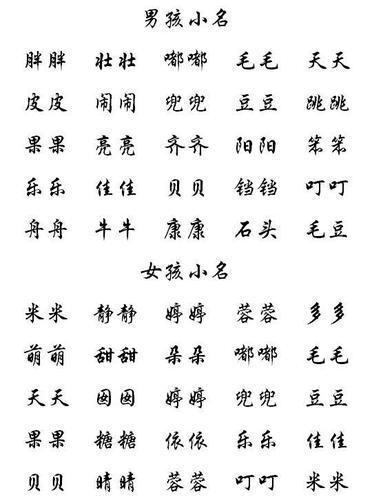 男孩小名
胖胖 壮壮 嘟嘟 毛毛 天天
皮皮 闹闹 兜兜 豆豆 跳跳
果果 亮亮 齐齐 阳阳 笨笨
乐乐 佳佳 贝贝 铛铛 叮叮
舟舟 牛牛 康康 石头 毛豆
女孩小名
米米 静静 婷婷 蓉蓉 多多
萌萌 甜甜 朵朵 嘟嘟 毛毛
天天 囡囡 婷婷 兜兜 豆豆
果果 糖糖 依依 乐乐 佳佳
贝贝 晴晴 蓉蓉 叮叮 米米